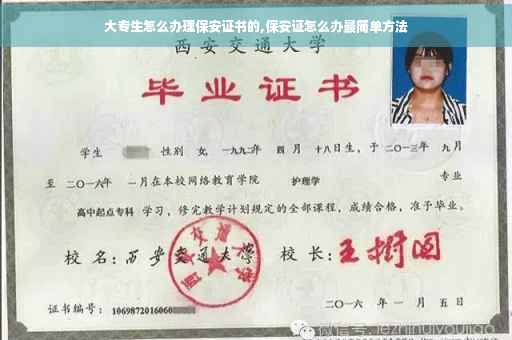 大专生怎么办理保安证书的,保安证怎么办最简单方法
西安交通大学
毕业证书
学生 性别 女, 一九九二年 四月 十八日生, 于 二〇一三年 九月
至 二〇一六年 一月在本校网络教育学院 护理学 专业
高中起点专科 学习, 修完教学计划规定的全部课程, 成绩合格, 准予毕业。
校名: 西安交通大学 校长: 王树国
西安交通大学
证书编号: 1069872016060
二〇一六年 一月 五日
微信号: jezhihuiyoujiao